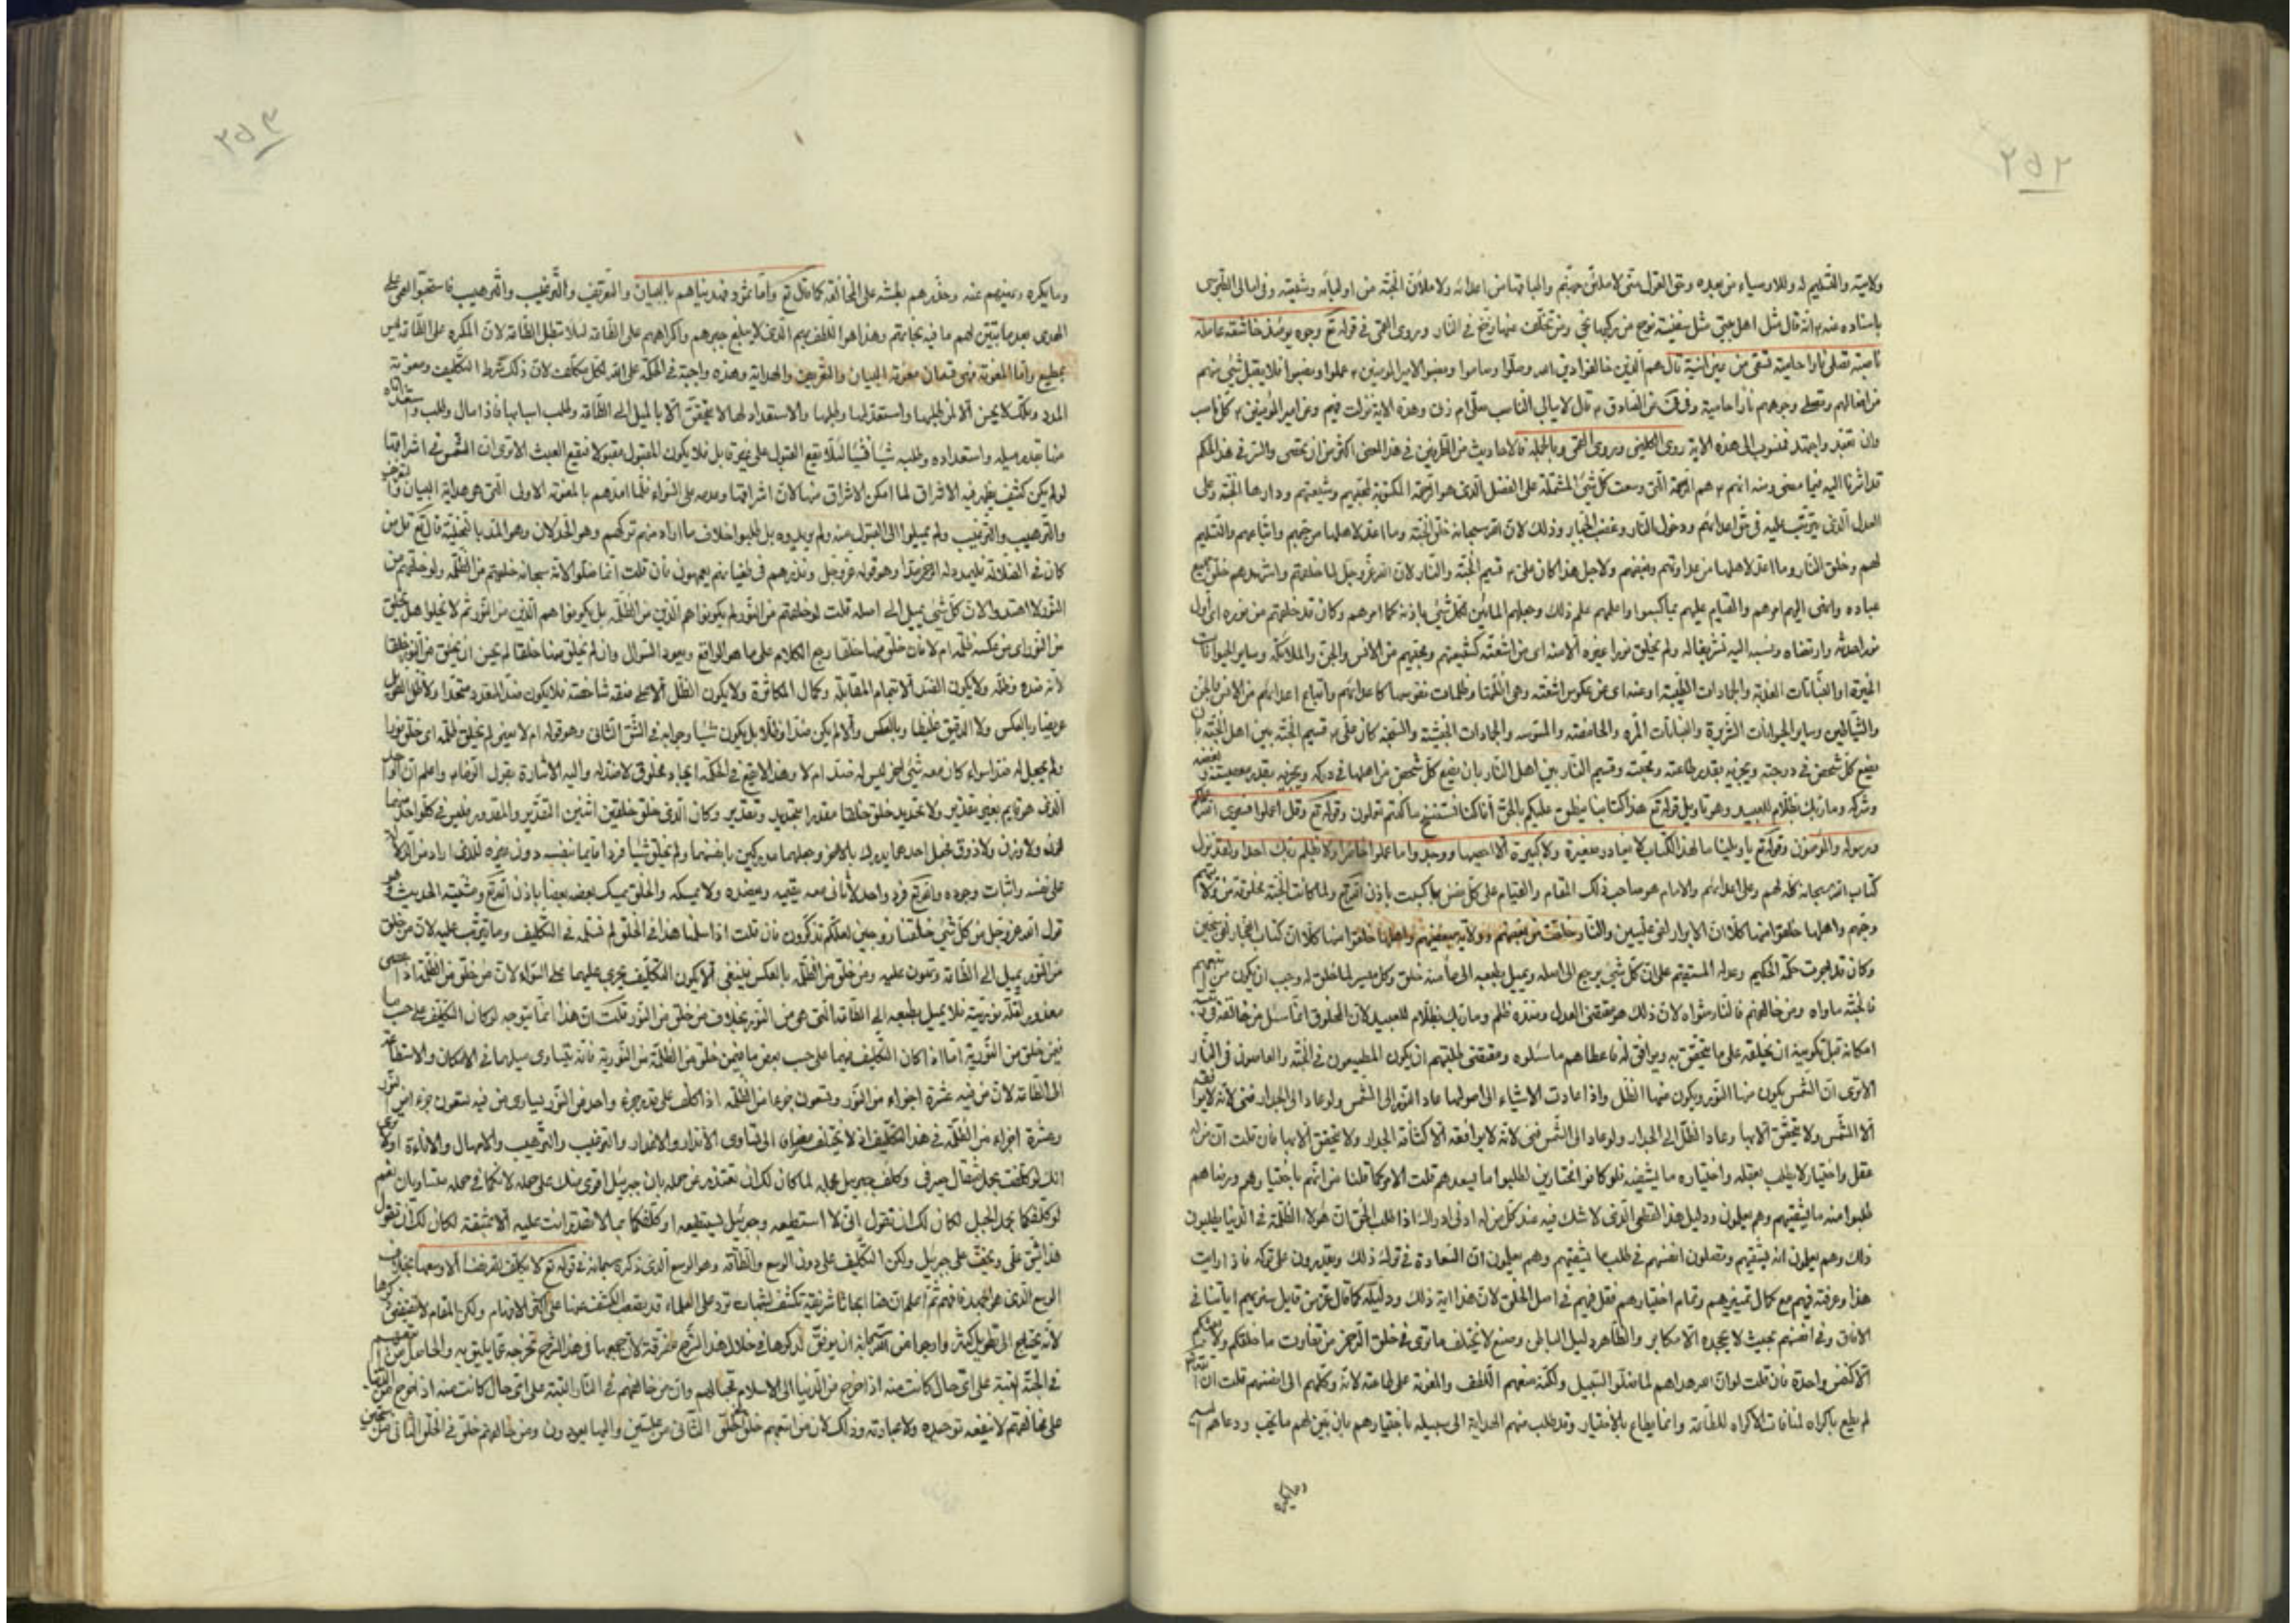 ٢٥٢
ولايته والتسليم له وللاوصياء من بعده وحق القول منى لاملئن جهنم والباقها من اعدائه ولاملأن الجنة من اوليائه وشيعته وفى امالى الطبرسى
باسناده عنه ٤ انه قال مثل اهل بيتى مثل سفينة نوح من ركبها نجى ومن تخلف عنها زخ فى النار وروى القمى فى قوله تع وجوه يومئذ خاشعة عاملة
ناصبة تصلى نارا حامية تسقى من عين انية قال هم الذين خالفوا دين الله وصلوا وصاموا ونصبوا لامير المؤمنين ٤ عملوا ونصبوا فلا يقبل شئ منهم
من افعالهم وتصلى وجوههم نارا حامية وفى عن الصادق ٤ قال لا يبالى الناصب صلى ام زنى وهذه الاية نزلت فيهم وعن امير المؤمنين ٤ كل ناصب
وان تعبد واجتهد فمنسوب الى هذه الاية روى الكلينى وروى القمى وبالجملة فالاحاديث من الطرفين فى هذا المعنى اكثر من ان تحصى والسر فى هذا الحكم
قد اشرنا اليه فيما مضى ومنه انهم ٤ هم الرحمة التى وسعت كل شئ المشتملة على الفضل الذى هو الرحمة المكتوبة لمحبيهم وشيعتهم ودارها الجنة وعلى
العدل الذى يترتب عليه فى حق اعدائهم ودخول النار وغضب الجبار وذلك لان الله سبحانه خلق الجنة وما اعد لاهلها من حبهم واتباعهم والتسليم
لهم وخلق النار وما اعد لاهلها من عداوتهم وبغضهم ولاجل هذا كان على ٤ قسيم الجنة والنار لان الله عز وجل لما خلقهم واشهدهم خلق جميع
عباده وانهى اليهم امرهم والقيام عليهم بما كسبوا واعلمهم علم ذلك وجعلهم المبلغين لكل شئ باذنه كما امرهم وكان قد خلقهم من نوره اى اول
نور احدثه وارتضاه ونسبه اليه تشريفا له ولم يخلق نورا غيره الا منه اى من اشعته كشيعتهم ومحبيهم من الانس والجن والملائكة وساير الحيوانات
الخيرة او النباتات العذبة والجمادات الطيبة او عنه اى من عكوس اشعته وهى اظلتها وظلمات نفوسها كاعدائهم واتباع اعدائهم من الانس والجن
والشياطين وساير الحيوانات الشريرة والنباتات المرة والحامضة والجمادات الخبيثة والسبخة كان على ٤ قسيم الجنة بين اهل الجنة بان
يضع كل شخص فى درجته ويجزيه بقدر طاعته ومحبته وقسيم النار بين اهل النار بان يضع كل شخص من اهلها فى دركه ويجزيه بقدر معصيته وبغضه
وشركه وما ربك بظلام للعبيد وهو تاويل قوله تع هذا كتابنا ينطق عليكم بالحق انا كنا نستنسخ ما كنتم تعملون وقوله تع وقل اعملوا فسيرى الله عملكم
ورسوله والمؤمنون وقوله تع يا ويلتنا ما لهذا الكتاب لا يغادر صغيرة ولا كبيرة الا احصيها ووجدوا ما عملوا حاضرا ولا يظلم ربك احدا
كتاب الله سبحانه كله لهم وعلى اعدائهم والامام هو صاحب ذلك المقام والقيام على كل نفس بما كسبت باذن الله تع ولما كانت الجنة مخلوقة من ولايتهم
وحبهم واهلها خلقوا منها كلا ان الابرار لفى عليين والنار خلقت من بغضهم وولاية مبغضيهم واهلها خلقوا منها كلا ان كتاب الفجار لفى سجين
وكان قد اجرت حكمة الحكيم وعدله المستقيم على ان كل شئ يرجع الى اصله ويميل بطبعه الى ما منه خلق وكل ميسر لما خلق له وجب ان يكون من اتبعهم
فالجنة ماواه ومن خالفهم فالنار مثواه لان ذلك هو مقتضى العدل وضده ظلم وما ربك بظلام للعبيد لان المخلوق انما سئل من خالقه
امكانه قبل تكوينه ان يخلقه على ما يتحقق به ويوافق له فاعطاهم ما سئلوه ومقتضى طلبتهم ان يكون المطيعون فى الجنة والعاصون فى النار
الاترى ان الشمس يكون منها النور ويكون منها الظل واذا عادت الاشياء الى اصولها عاد النور الى الشمس ولو عاد الى الجدار فنى لانه لا يوافقه
الا الشمس ولا يتحقق الا بها وعاد الظل الى الجدار ولو عاد الى الشمس فنى لانه لا يوافقه الا كثافة الجدار ولا يتحقق الا بها فان قلت ان من له
عقل واختيار لا يطلب بعقله واختياره ما يشقيه فلو كانوا مختارين لطلبوا ما يسعدهم قلت الامر كما قلنا من انهم باختيارهم ورضاهم
طلبوا منه ما يشقيهم وهم يعلمون ودليل هذا القطعى الذى لا شك فيه عند كل من له ادنى ادراك اذا طلب الحق ان هؤلاء الظلمة فى الدنيا يطلبون
ذلك وهم يعلمون انه يشقيهم ويقتلون انفسهم فى طلب ما يشقيهم وهم يعلمون ان السعادة فى ترك ذلك ويقدرون على تركه فاذا رايت
هذا وعرفته فيهم مع كمال تمييزهم وتمام اختيارهم فقل فيهم فى اصل الخلق لان هذا اية ذلك ودليله كما قال عز من قايل سنريهم اياتنا فى
الافاق وفى انفسهم بحيث لا يجحده الا مكابر والظاهر دليل الباطن وصنع لا يختلف ما ترى فى خلق الرحمن من تفاوت ما خلقكم ولا بعثكم
الا كنفس واحدة فان قلت لو ان الله هداهم لما ضلوا السبيل ولكنه منعهم اللطف والمعونة على طاعته لانه وكلهم الى انفسهم قلت ان الله تع
لم يطع باكراه لمنافات الاكراه للطاعة وانما يطاع بالاختيار وقد طلب منهم الهداية الى سبيله باختيارهم بان بين لهم ما يحب ودعاهم اليه
وما يكره
٢٥٣
وما يكره ونهيهم عنه وحذرهم بطشه على المخالفة كما قال تع واما ثمود فهديناهم بالبيان والتعريف والترغيب والترهيب فاستحبوا العمى على
الهدى بعد ما تبين لهم ما فيه نجاتهم وهذا هو اللطف بهم الذى لا يبلغ جبرهم واكراههم على الطاعة لئلا تبطل الطاعة لان المكره على الطاعة ليس
بمطيع واما المعونة فهى قسمان معونة البيان والتعريف والهداية وهذه واجبة فى الحكمة على الله لكل مكلف لان ذلك شرط التكليف ومعونة
المدد وتلك لا يحسن الا لمن طلبها واستعد لها وطلبها والاستعداد لها لا يتحقق الا بالميل الى الطاعة وطلب اسبابها فاذا مال وطلب واستعد اتاه
منها بقدر ميله واستعداده وطلبه شيئا فشيئا لئلا يقع القبول على غير قابل فلا يكون المقبول مقبولا فيقع العبث الاترى ان الشمس فى اشراقها
لو لم يكن كثيف يظهر فيه الاشراق لما امكن الاشراق منها لان اشراقها وعدمه على السواء فلما امدهم بالمعونة الاولى التى هى هداية البيان والتعريف
والترهيب والترغيب ولم يميلوا الى القبول منه ولم يريدوه بل طلبوا خلاف ما اراد منهم تركهم وهو الخذلان وهو المد بالتخلية قال تع قل من
كان فى الضلالة فليمدد له الرحمن مدا وهو قوله عز وجل ونذرهم فى طغيانهم يعمهون فان قلت انما ضلوا لانه سبحانه خلقهم من الظلمة ولو خلقهم من
النور لاهتدوا لان كل شئ يميل الى اصله قلت لو خلقهم من النور لم يكونوا هم الذين من الظلمة بل يكونوا هم الذين من النور ثم لا يخلوا هل يخلق
من النور اى من عكسه ظلمة ام لا فان خلق منها خلقا رجع الكلام على ما هو الواقع ويعود السؤال وان لم يخلق منها خلقا لم يحسن ان يخلق من النور خلقا
لانه ضده وظله ولا يكون الضد الا بتمام المقابلة وكمال المكاثرة ولا يكون الظل الا على صفة شاخصة فلا يكون ضد المتعدد متحدا ولا ظل الطويل
عريضا وبالعكس ولا الدقيق غليظا وبالعكس والا لم يكن ضدا وظلا بل يكون شيئا وجوابه فى الشق الثانى وهو قوله ام لا يعنى لم يخلق ظلمة اى خلق نورا
ولم يجعل له ضدا سواء كان معه شئ اخر ليس له ضد ام لا وهذا لا يقع فى الحكمة ايجاد مخلوق لا ضد له واليه الاشارة بقول الرضا ٤ واعلم ان الواحد
الذى هو قايم بغير تقدير ولا تحديد خلق خلقا مقدرا بتحديد وتقدير وكان الذى خلق خلقين اثنين التقدير والمقدر وليس فى كل واحد منهما
لون ولا وزن ولا ذوق فجعل احدهما يدرك بالاخر وجعلهما مدركين بانفسهما ولم يخلق شيئا فردا قايما بنفسه دون غيره للذى اراد من الدلالة
على نفسه واثبات وجوده والله تع فرد واحد لا ثانى معه يقيمه ويعضده ولا يمسكه والخلق يمسك بعضه بعضا باذن الله تع ومشيته الحديث وهو
قول الله عز وجل من كل شئ خلقنا زوجين لعلكم تذكرون فان قلت اذا سلمنا هذا فى الخلق لم نسلمه فى التكليف وما يترتب عليه لان من خلق
من النور يميل الى الطاعة وتهون عليه ومن خلق من الظلمة بالعكس فينبغى الا يكون التكليف يجرى عليهما على السواء لان من خلق من الظلمة اذا عصى
معذور لقلة نوريته فلا يميل بطبعه الى الطاعة التى هى من النور بخلاف من خلق من النور قلت ان هذا انما يتوجه لو كان التكليف على حسب ما
فيمن خلق من النورية اما اذا كان التكليف فيهما على حسب بعض ما فيمن خلق من الظلمة من النورية فانه يتساوى ميلهما فى الامكان والاستطاعة
الى الطاعة لان من فيه عشرة اجزاء من النور وتسعون جزءا من الظلمة اذا كلف على قدر جزء واحد من النور يساوى من فيه تسعون جزءا من النور
وعشرة اجزاء من الظلمة فى هذا التكليف اذ لا يختلف الى تساوى الانذار والاعذار والترغيب والترهيب والامهال والاناءة اولا ترى
انك لو كلفت بحمل مثقال صيرفى وكلف جبرئيل بحمله لما كان لك ان تعتذر عن حمله بان جبرئيل اقوى منك على حمله لانكما فى حمله متساويان نعم
لو كلفكما بحمل الجبل لكان لك ان تقول انى لا استطيعه وجبرئيل يستطيعه او كلفكما بما لا تقدر انت عليه الا بمشقة لكان لك ان تقول
هذا يشق على ويخف على جبرئيل ولكن التكليف على دون الوسع والطاقة وهو الوسع الذى ذكره سبحانه فى قوله تع لا يكلف الله نفسا الا وسعها بخلاف
الوسع الذى هو الجهد فافهم ثم اعلم ان هنا ابحاثا شريفة تكشف شبهات ترد على العلماء قد يصعب الكشف عنها على اكثر الافهام ولكن المقام لا يقتضى ذكرها
لانه يحتاج الى تطويل كثير وارجوا من الله سبحانه ان يوفق لذكرها فى خلال هذا الشرح متفرقة لان جمعها فى هذا الشرح تخرجه عما يليق به والحاصل من اتبعهم
فى الجنة البتة على اى حال كانت منه اذا خرج من الدنيا الى الاسلام تحبا لهم وان من خالفهم فى النار البتة على اى حال كانت منه اذا خرج من الدنيا
على مخالفتهم لا ينفعه توحيده ولا عبادته وذلك لان من اتبعهم خلق فى الخلق الثانى من عليين واليها يعودون ومن خالفهم خلق فى الخلق الثانى من سجين